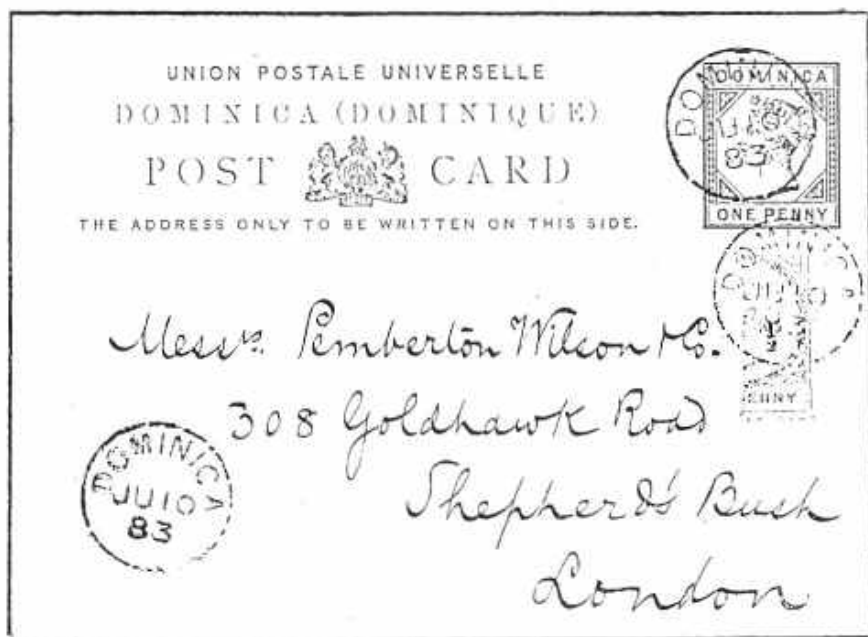 UNION POSTALE UNIVERSELLE
DOMINICA (DOMINIQUE)
POST CARD
THE ADDRESS ONLY TO BE WRITTEN ON THIS SIDE.
DOMINICA
83
DOMINICA
ONE PENNY
DOMINICA
ENNY
Messrs. Pemberton Wilson & Co.
308 Goldhawk Road
Shepherd's Bush
London
DOMINICA
JU 10
83